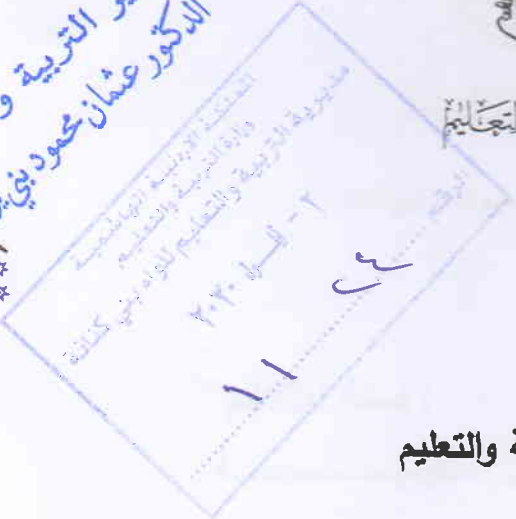 التربية و
الدكتور عثمان محمود بني
التعليم
المملكة الأردنية الهاشمية
وزارة التربية والتعليم
مديرية التربية والتعليم للواء بني كنانة
٢٠٢٠
الرقم
١١
والتعليم